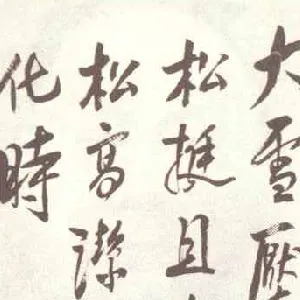 大雪壓
松挺且
松高潔
化時